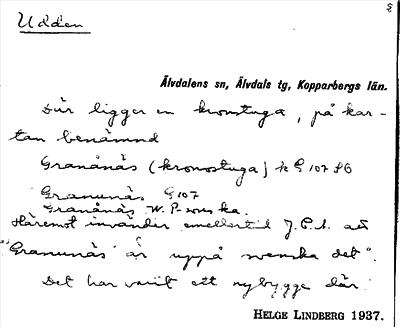 Udden
Älvdalens sn, Älvdals tg, Kopparbergs län.
Där ligger en kronstuga, på kar-
tan benämnd
Granånäs (kronostuga) k G 107 SG
Granunäs G 107
Granånäs W. P-
Häremot invänder emellertid J. P. S. att
"Granunäs är uppå svenska det".
Det har varit ett nybygge där.
HELGE LINDBERG 1937.